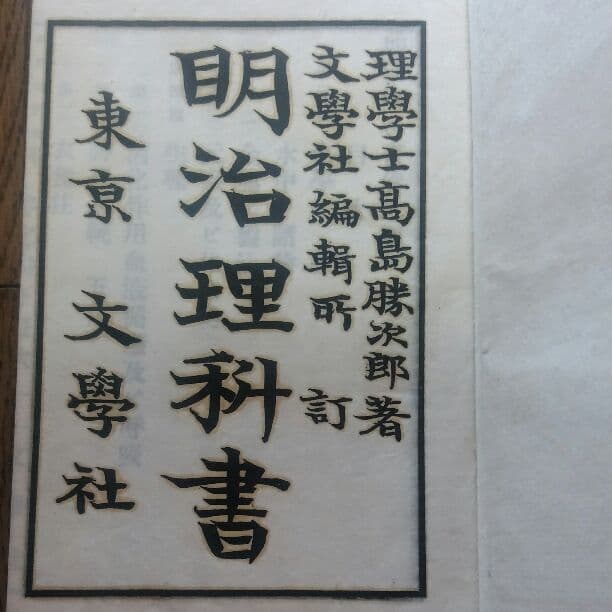 理學士髙島勝次郎著
文學社編輯所 訂
明治理科書
東京 文學社